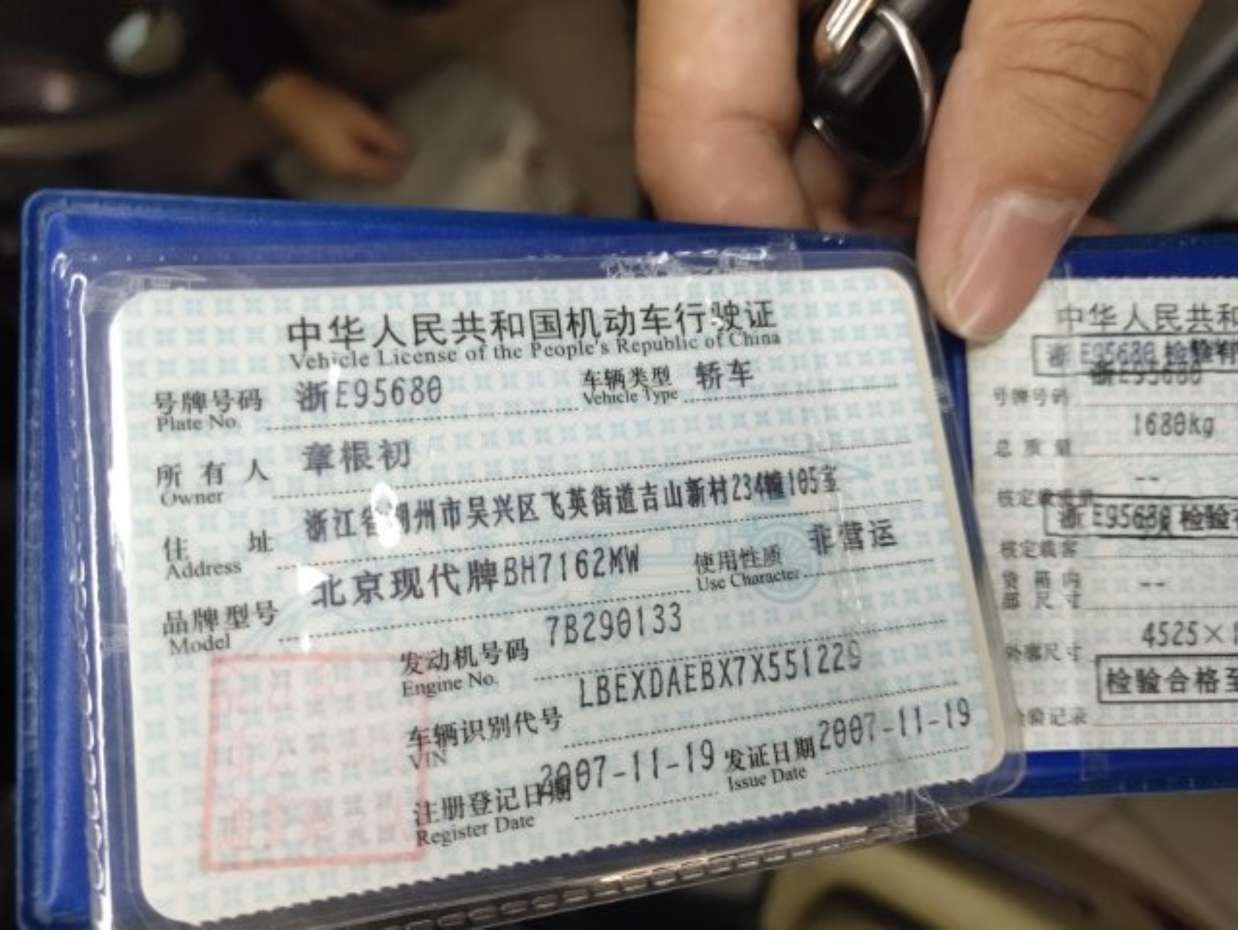 中华人民共和国机动车行驶证
Vehicle License of the People's Republic of China
号牌号码 浙E95680 车辆类型 轿车
Plate No. Vehicle Type
所有人 章根初
Owner
住址 浙江省湖州市吴兴区飞英街道吉山新村234幢105室
Address
品牌型号 北京现代牌BH7162MW 使用性质 非营运
Model Use Character
发动机号码 7B290133
Engine No.
车辆识别代号 LBEXDAEBX7X551229
VIN
注册登记日期 2007-11-19 发证日期 2007-11-19
Register Date Issue Date
中华人民共和
浙E95680 检验有
号牌号码 浙E95680
总质量 1680kg
核定载质量 --
浙E95680 检验有
核定载客
货箱内部尺寸 --
外廓尺寸 4525×
检验合格至
检验记录